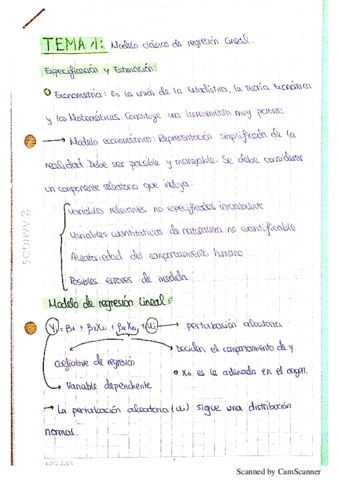 TEMA 1: Modelo clásico de regresión Lineal.
Especificación y Estimación
Econometría: Es la unión de la Estadística, la Teoría Económica
y las Matemáticas. Constituye una herramienta muy potente.
→ Modelo econométrico: Representación simplificada de la
realidad. Debe ser posible y manejable. Se debe considerar
un componente aleatorio que incluya:
Variables relevantes no especificadas
Variables cuantitativas de naturaleza no cuantificable
Aleatoriedad del comportamiento humano
Posibles errores de medida
Modelo de regresión Lineal:
Yi = β1 + β2X2i + βkXki + Ui → perturbación aleatoria
deciden el comportamiento de y
de regresión
es la ordenada en el origen.
Variable dependiente
→ La perturbación aleatoria (Ui) sigue una distribución
normal.
AMIGOS
Scanned by CamScanner